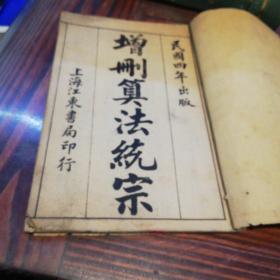 民國四年出版
增刪算法統宗
上海江東書局印行